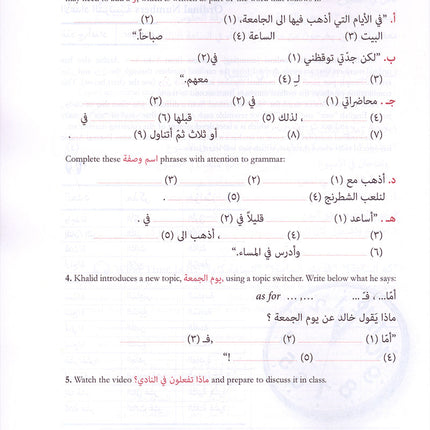 أ. "في الأيام التي أذهب فيها الى الجامعة، (١) (٢)
البيت (٣) الساعة (٤) صباحاً."
ب. "لكن جدّتي توقظني (١) في(٢)
(٣) لـِ (٤) معهم."
جـ. محاضراتي (١) في (٢) (٣)
(٤) ، لذلك (٥) قبلها (٦) في
(٧) (٨) أو ثلاث ثمّ أتناول (٩) .
Complete these اسم وصفة phrases with attention to grammar:
د. أذهب مع (١) (٢) (٣)
لنلعب الشطرنج (٤) (٥) .
هـ. "أساعد (١) قليلاً في (٢) في .
(٣) (٤) ، أذهب الى (٥)
(٦) وأدرس في المساء."
4. Khalid introduces a new topic, يوم الجمعة, using a topic switcher. Write below what he says:
أمّا... ، فـَ ... as for ... ,...
ماذا يَقول خالد عن يوم الجمعة ؟
"أمّا (١) (٢) ,فـ (٣)
(٤) (٥) !"
5. Watch the video ماذا تفعلون في النادي؟ and prepare to discuss it in class.